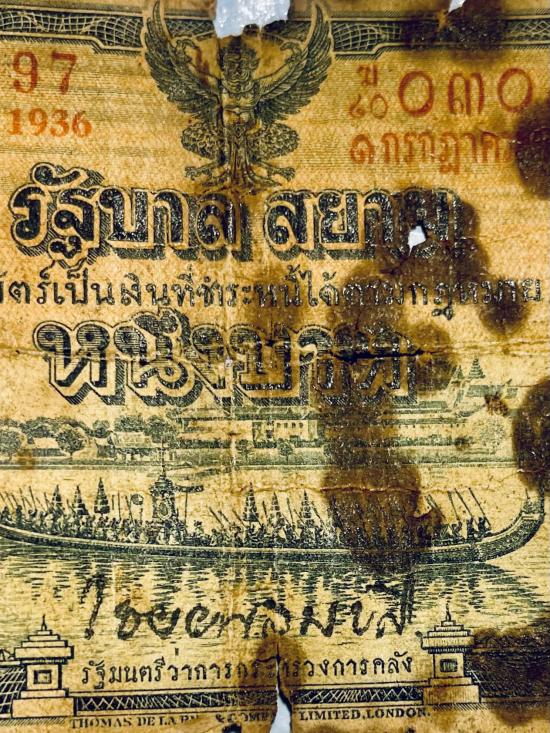 97 ๐๓๐
1936 ๑ กรกฎาค
รัฐบาลสยาม
บัตร์เป็นเงินที่ชำระหนี้ได้ตามกฎหมาย
หนึ่งบาท
ไชยยศสมบัติ
รัฐมนตรีว่าการกระทรวงการคลัง
THOMAS DE LA RUE & COMPANY LIMITED, LONDON.